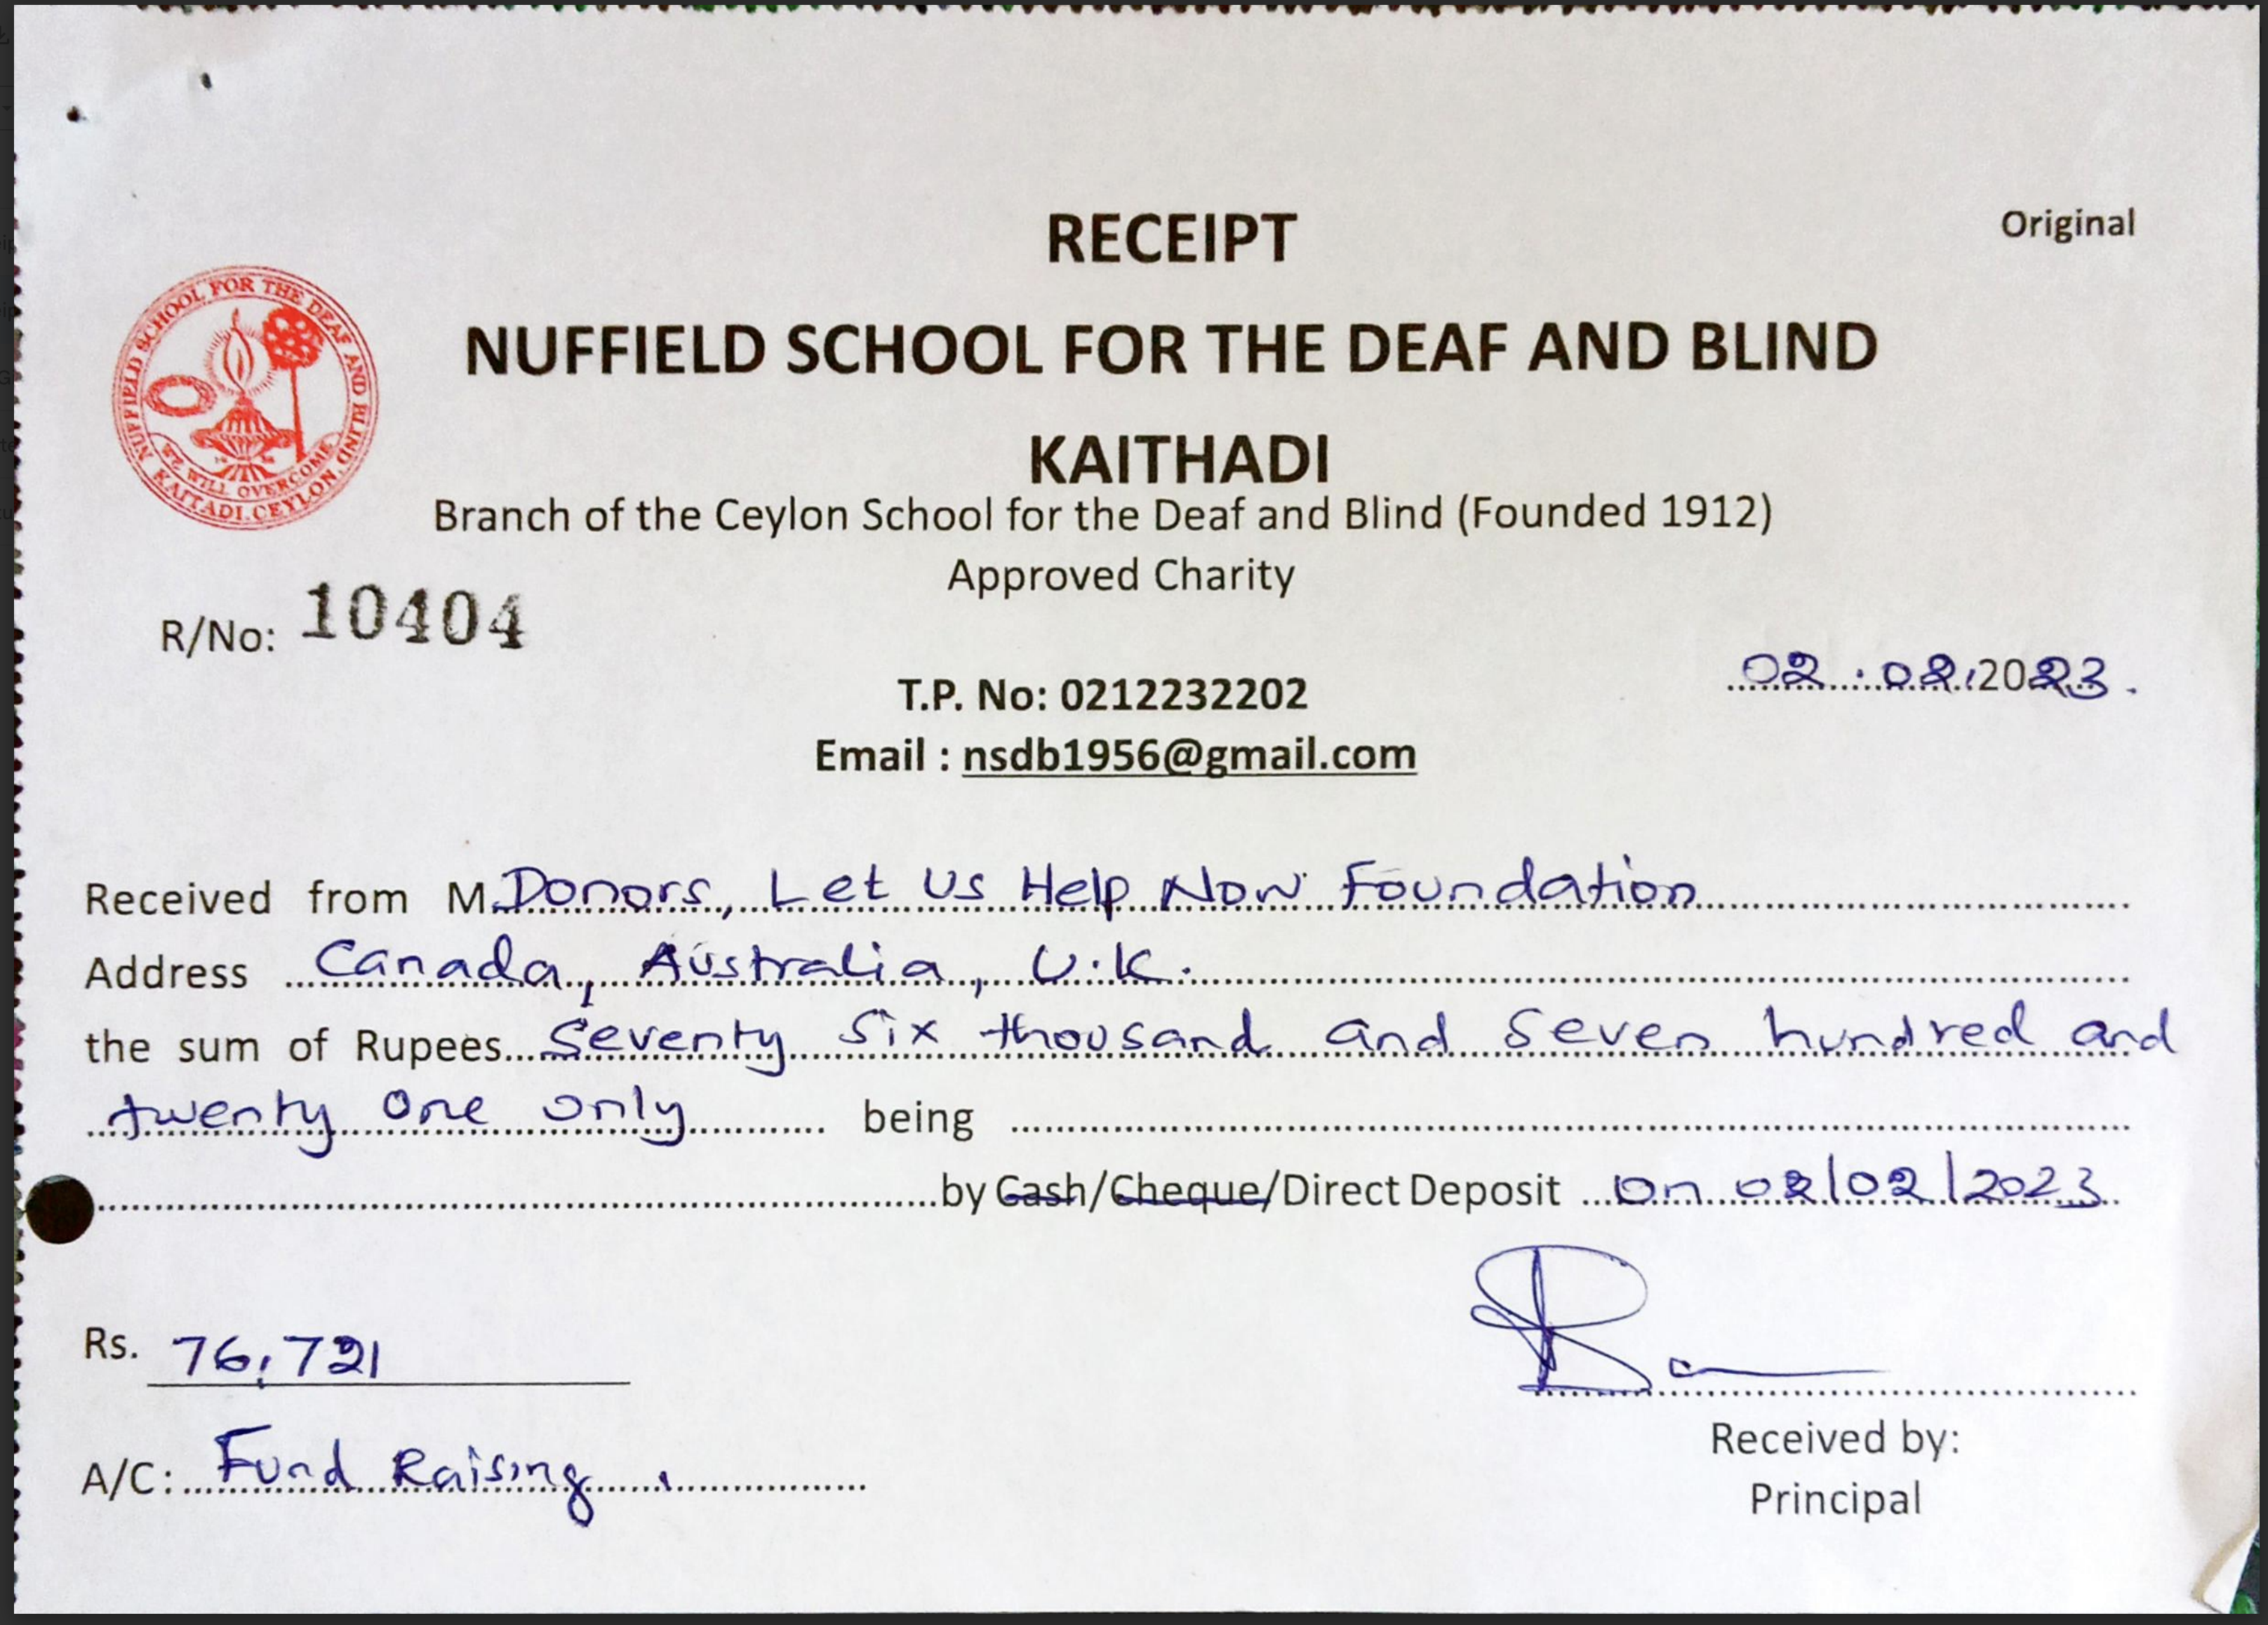 RECEIPT
Original
NUFFIELD SCHOOL FOR THE DEAF AND BLIND
KAITHADI
Branch of the Ceylon School for the Deaf and Blind (Founded 1912)
Approved Charity
NUFFIELD SCHOOL FOR THE DEAF AND BLIND
KAITADI. CEYLON.
WILL OVERCOME
R/No: 10404
02.02.2023.
T.P. No: 0212232202
Email : nsdb1956@gmail.com
Received from M. Donors, Let Us Help Now Foundation
Address Canada, Australia, U.K.
the sum of Rupees Seventy Six thousand and Seven hundred and
twenty One only being
by Cash/Cheque/Direct Deposit On 02/02/2023
Rs. 76,721
A/C: Fund Raising
Received by:
Principal